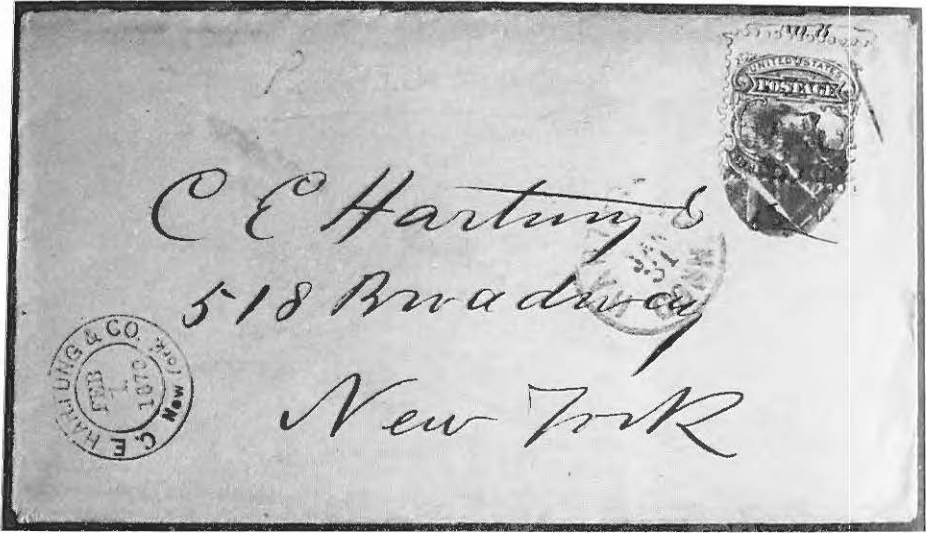 UNITED STATES
POSTAGE
C E Hartung &
518 Broadway
New York
JAN
31
C. E. HARTUNG & CO.
New York.
FEB
1870